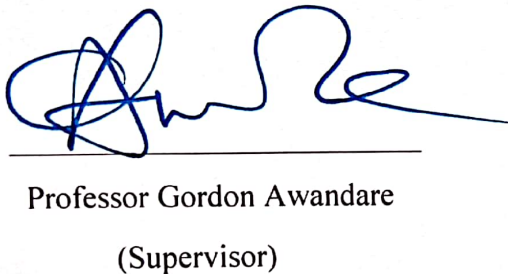 Professor Gordon Awandare
(Supervisor)